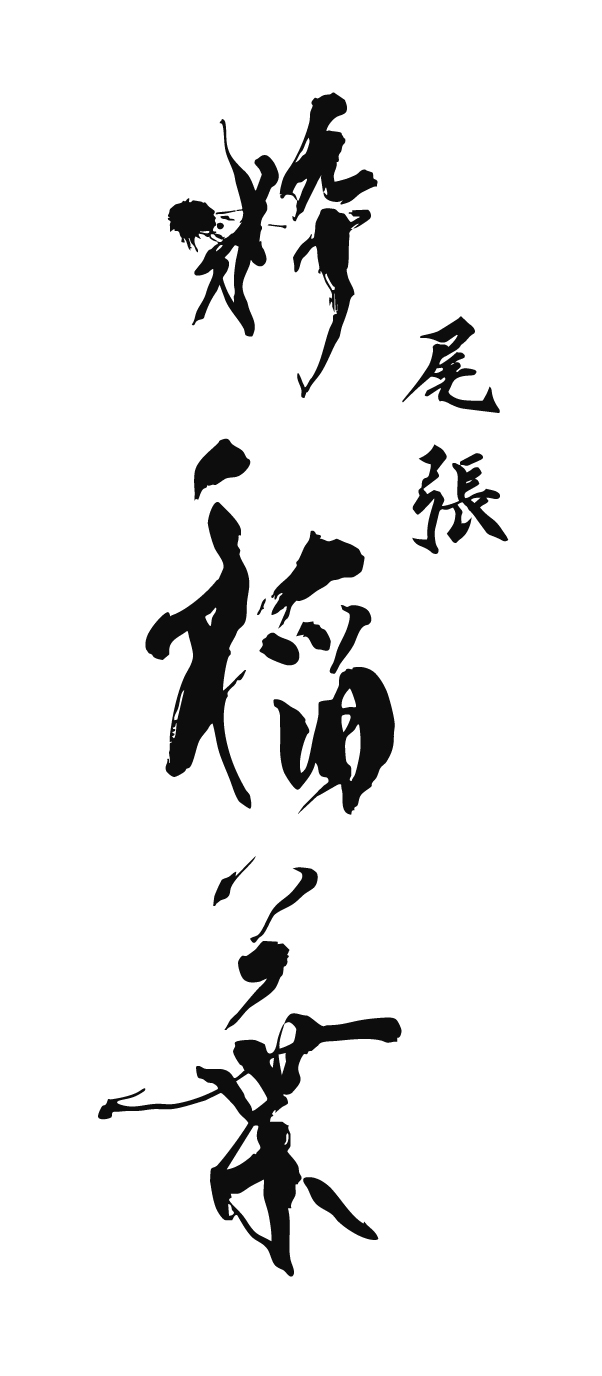 尾張
粋
稲葉